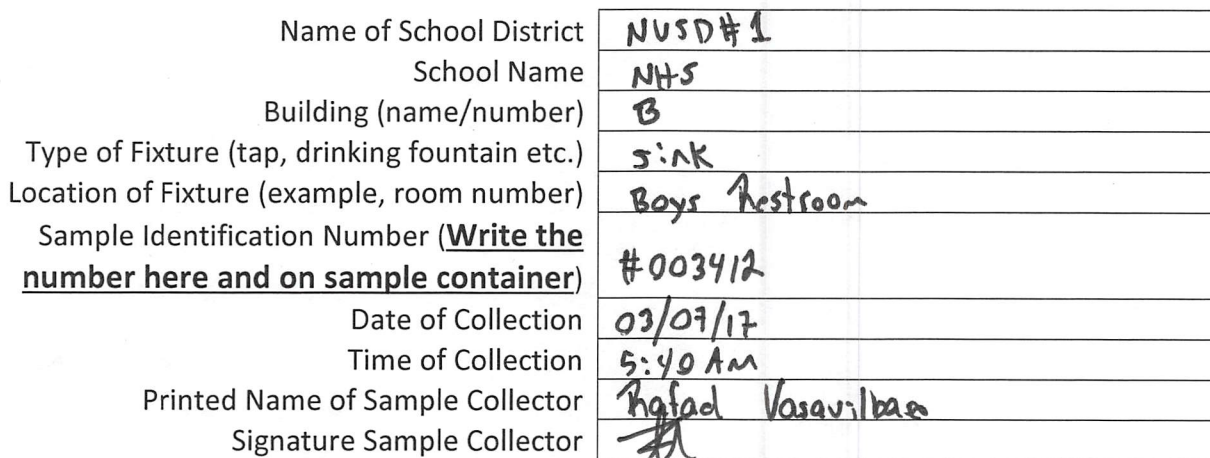 Name of School District NUSD#1
School Name NHS
Building (name/number) B
Type of Fixture (tap, drinking fountain etc.) sink
Location of Fixture (example, room number) Boys Restroom
Sample Identification Number (Write the
number here and on sample container) #003412
Date of Collection 03/07/17
Time of Collection 5:40 AM
Printed Name of Sample Collector
Signature Sample Collector